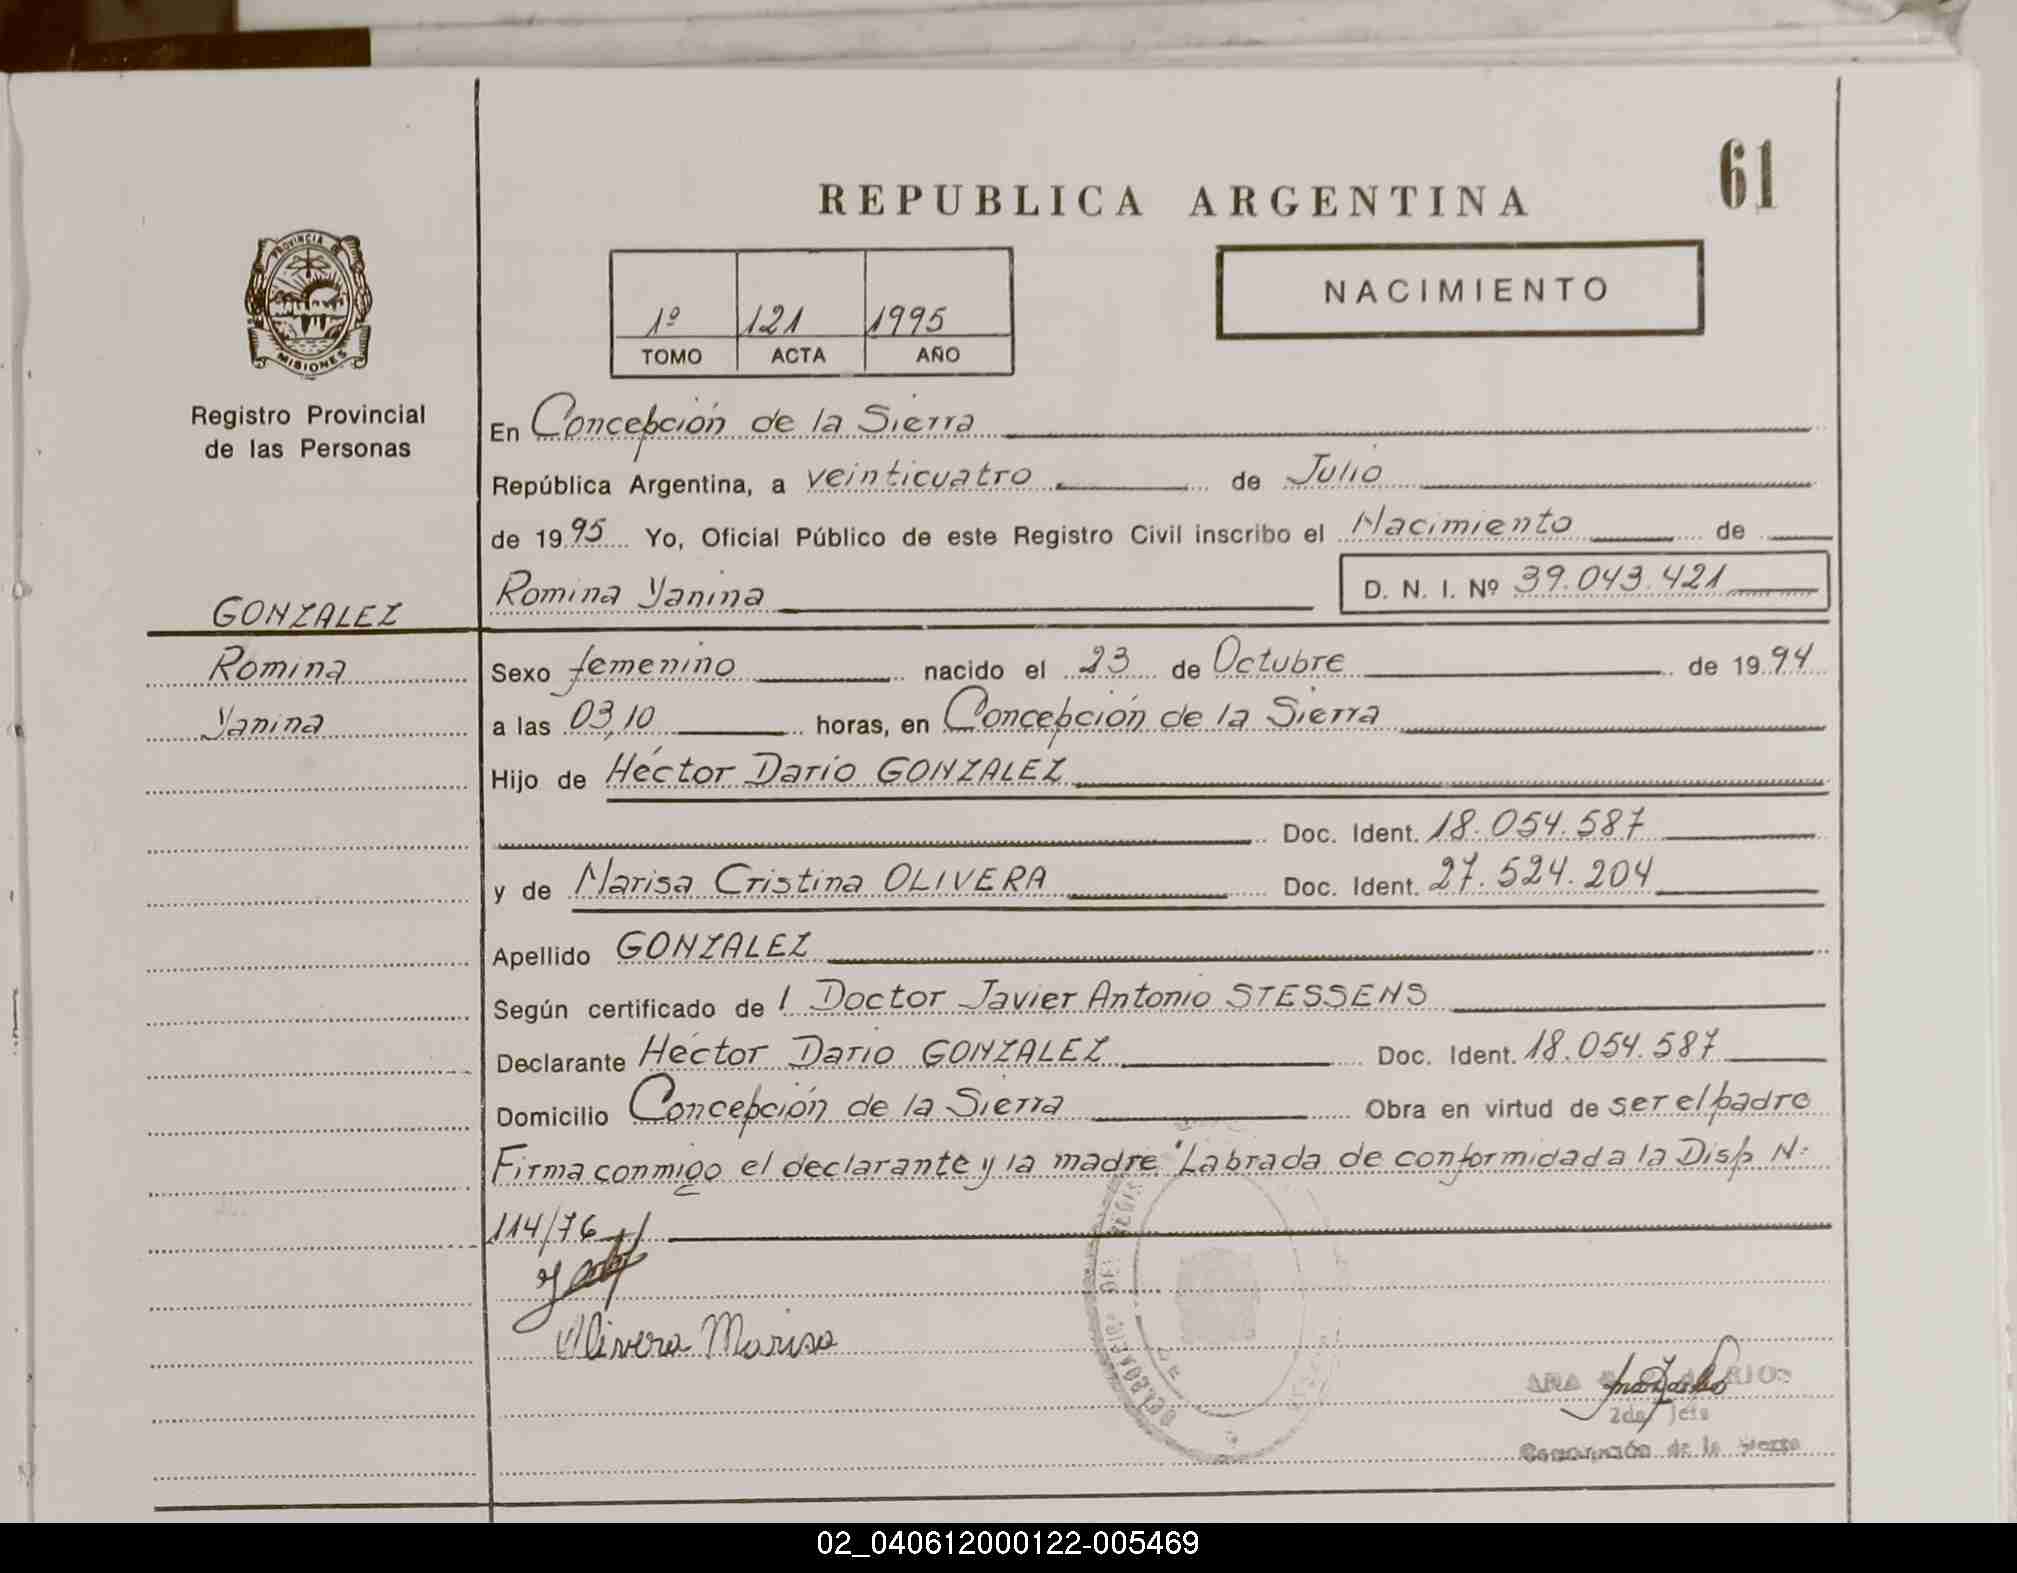 61
REPUBLICA ARGENTINA
PROVINCIA DE
MISIONES
1º 121 1995
TOMO ACTA AÑO
NACIMIENTO
Registro Provincial
de las Personas
En Concepción de la Sierra
República Argentina, a veinticuatro de Julio
de 1995 Yo, Oficial Público de este Registro Civil inscribo el Nacimiento de
Romina Yanina D. N. I. Nº 39.043.421
GONZALEZ
Romina
Yanina
Sexo femenino nacido el 23 de Octubre de 1994
a las 03,10 horas, en Concepción de la Sierra
Hijo de Héctor Darío GONZALEZ
Doc. Ident. 18.054.587
y de Marisa Cristina OLIVERA Doc. Ident. 27.524.204
Apellido GONZALEZ
Según certificado de l Doctor Javier Antonio STESSENS
Declarante Héctor Darío GONZALEZ Doc. Ident. 18.054.587
Domicilio Concepción de la Sierra Obra en virtud de ser el padre
Firma conmigo el declarante y la madre "Labrada de conformidad a la Disp N:
114/76
Olivera Marisa
ANA RIOS
2do Jefe
Concepción de la Sierra
02_040612000122-005469